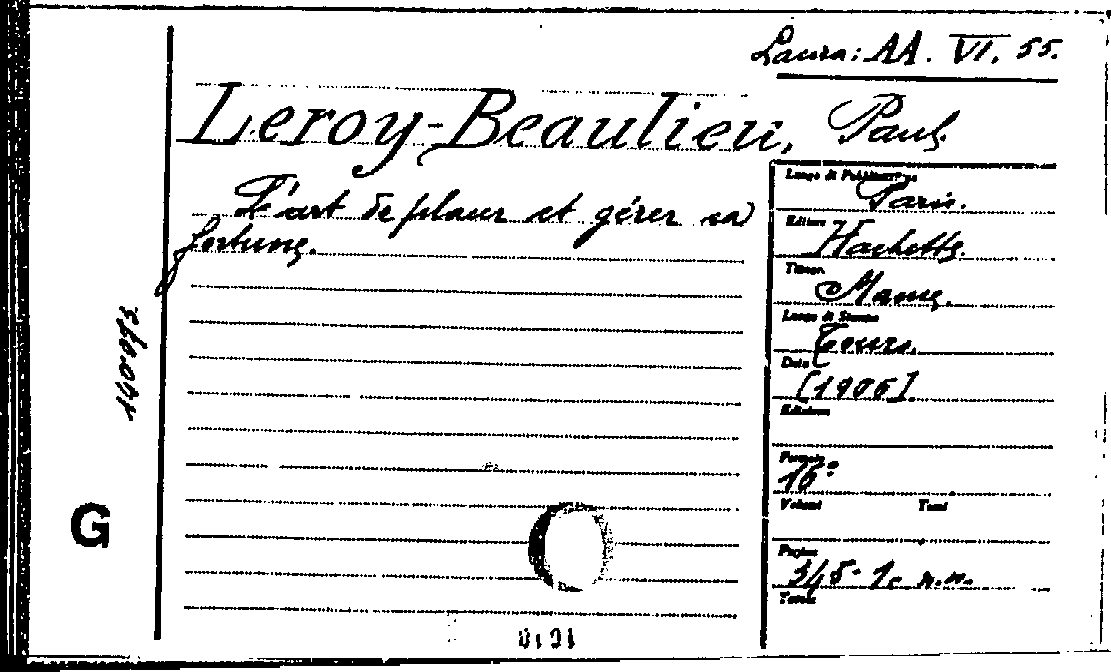 Laura: AA. VI. 55.
Leroy-Beaulieu, Paul.
L'art de placer et gérer sa
fortune.
Luogo di Pubblicazione
Paris.
Editore
Hachette.
Mame.
Luogo di Stampa
Tours.
Data
[1906]
Edizione
Formato
16°
Volumi Tomi
Pagine
345- 1. n.n.
Tavole
G